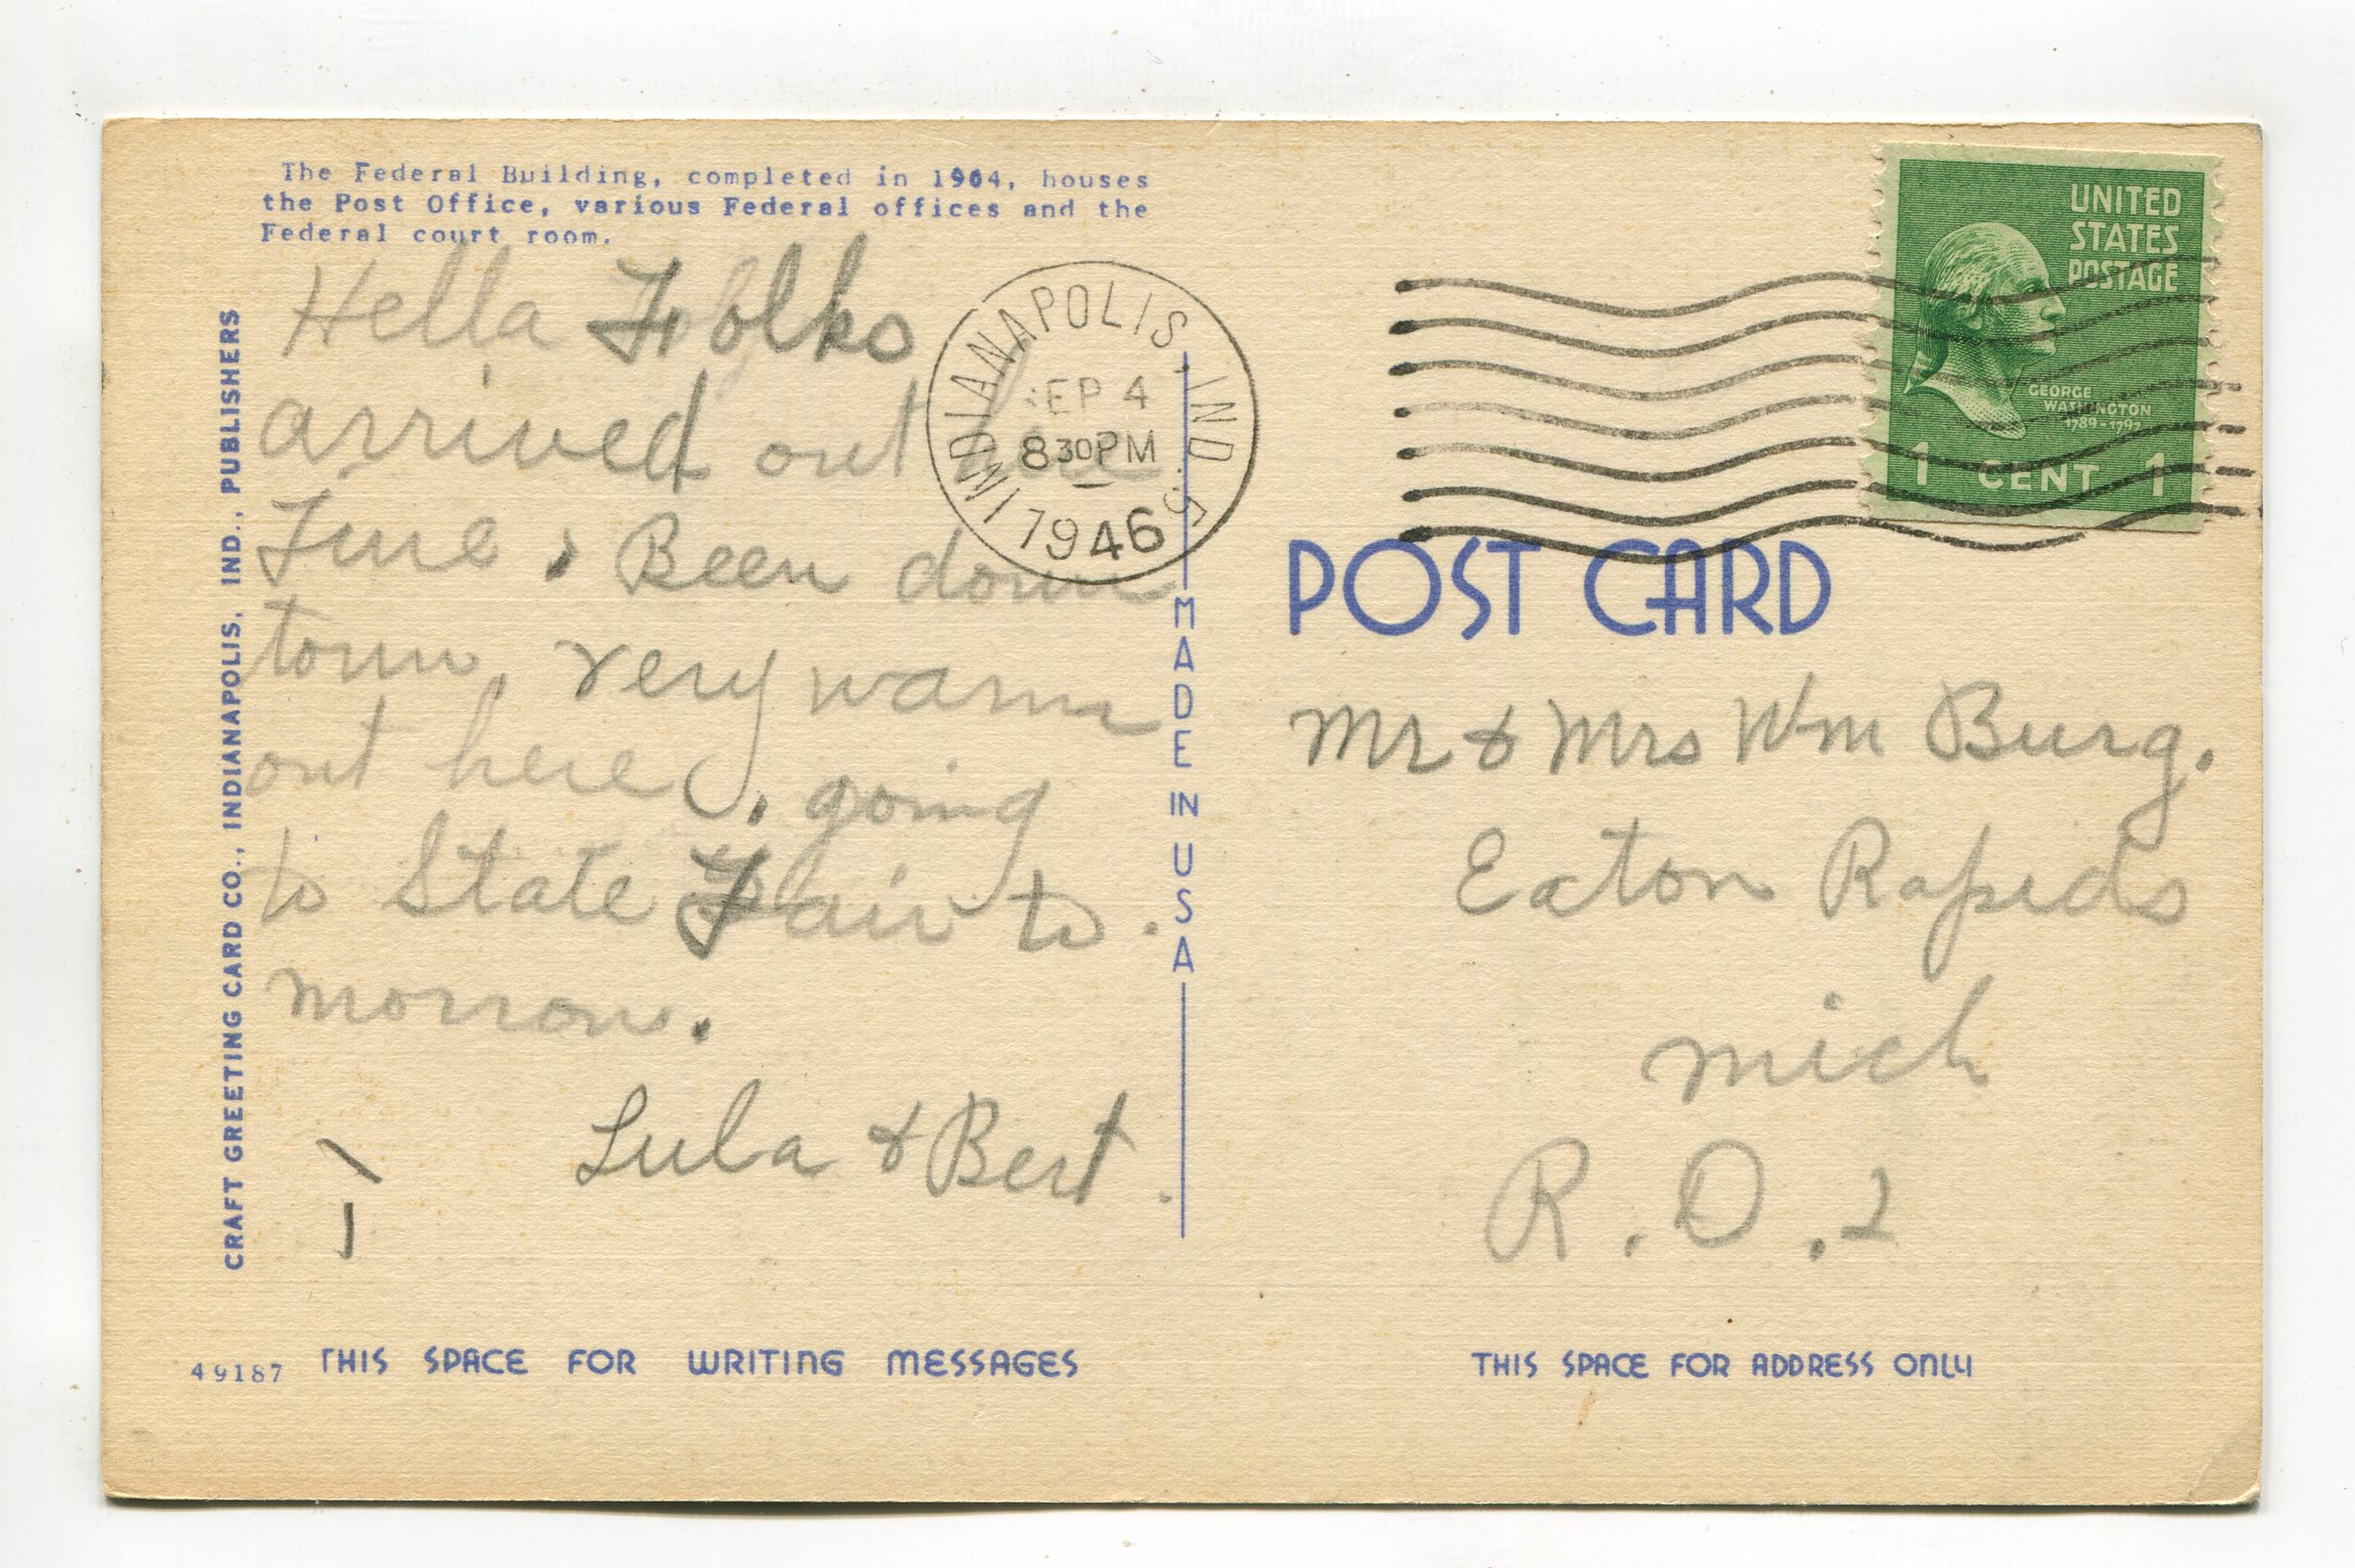 The Federal Building, completed in 1904, houses
the Post Office, various Federal offices and the
Federal court room.
Hella Folks
arrived out here
Fine. Been down
town, very warm
out here, going
to State Fair to.
morrow.
Lula & Bert.
CRAFT GREETING CARD CO., INDIANAPOLIS, IND., PUBLISHERS
49187
THIS SPACE FOR WRITING MESSAGES
MADE IN USA
INDIANAPOLIS, IND. 5
SEP 4
8 30 PM
1946
UNITED
STATES
POSTAGE
GEORGE
WASHINGTON
1789-1797
1 CENT 1
POST CARD
Mr & Mrs Wm Burg.
Eaton Rapids
Mich
R.D.2
THIS SPACE FOR ADDRESS ONLY